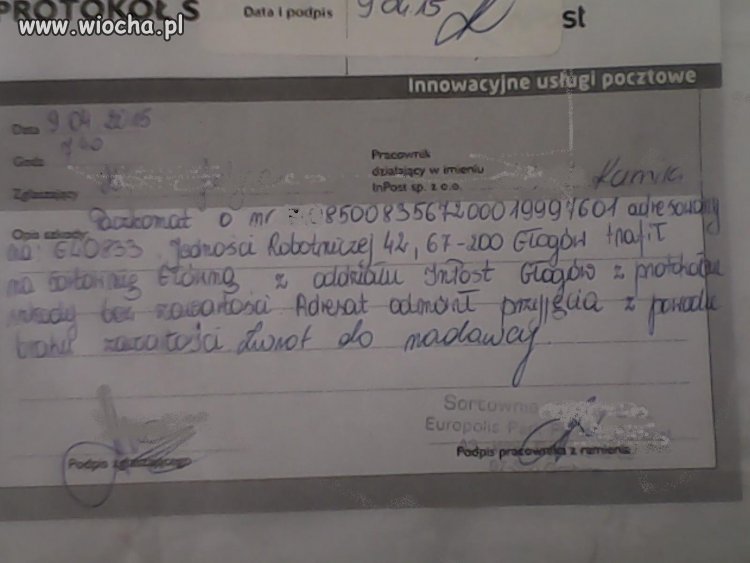 PROTOKÓŁ S
www.wiocha.pl
Data i podpis 9 04 15
st
Innowacyjne usługi pocztowe
Data 9 04 2015
Godz 7 40
Pracownik
działający w imieniu
InPost sp. z o.o.
Zgłaszający
Opis szkody: Paczkomat o nr 850083567200019997601 adresowany
na: GLO833 Jedności Robotniczej 42, 67-200 Głogów trafił
na sortownię Główną z oddziału InPost Głogów z protokołem
szkody bez zawartości Adresat odmówił przyjęcia z powodu
braku zawartości Zwrot do nadawcy.
Sortownia
Europolis Pa
Podpis zgłaszającego
Podpis pracownika z ramienia